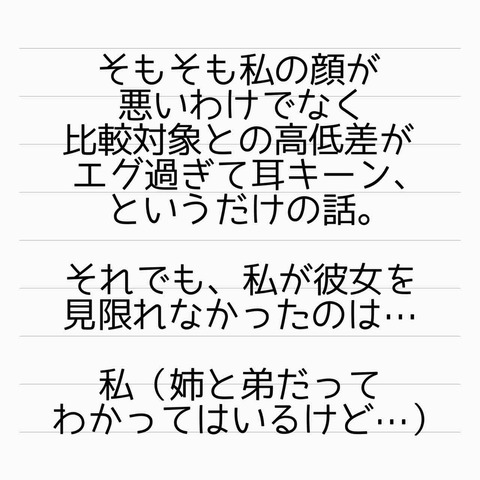 そもそも私の顔が
悪いわけでなく
比較対象との高低差が
エグ過ぎて耳キーン、
というだけの話。
それでも、私が彼女を
見限れなかったのは…
私（姉と弟だって
わかってはいるけど…）